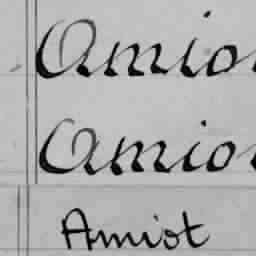 Amio
Amio
Amiot